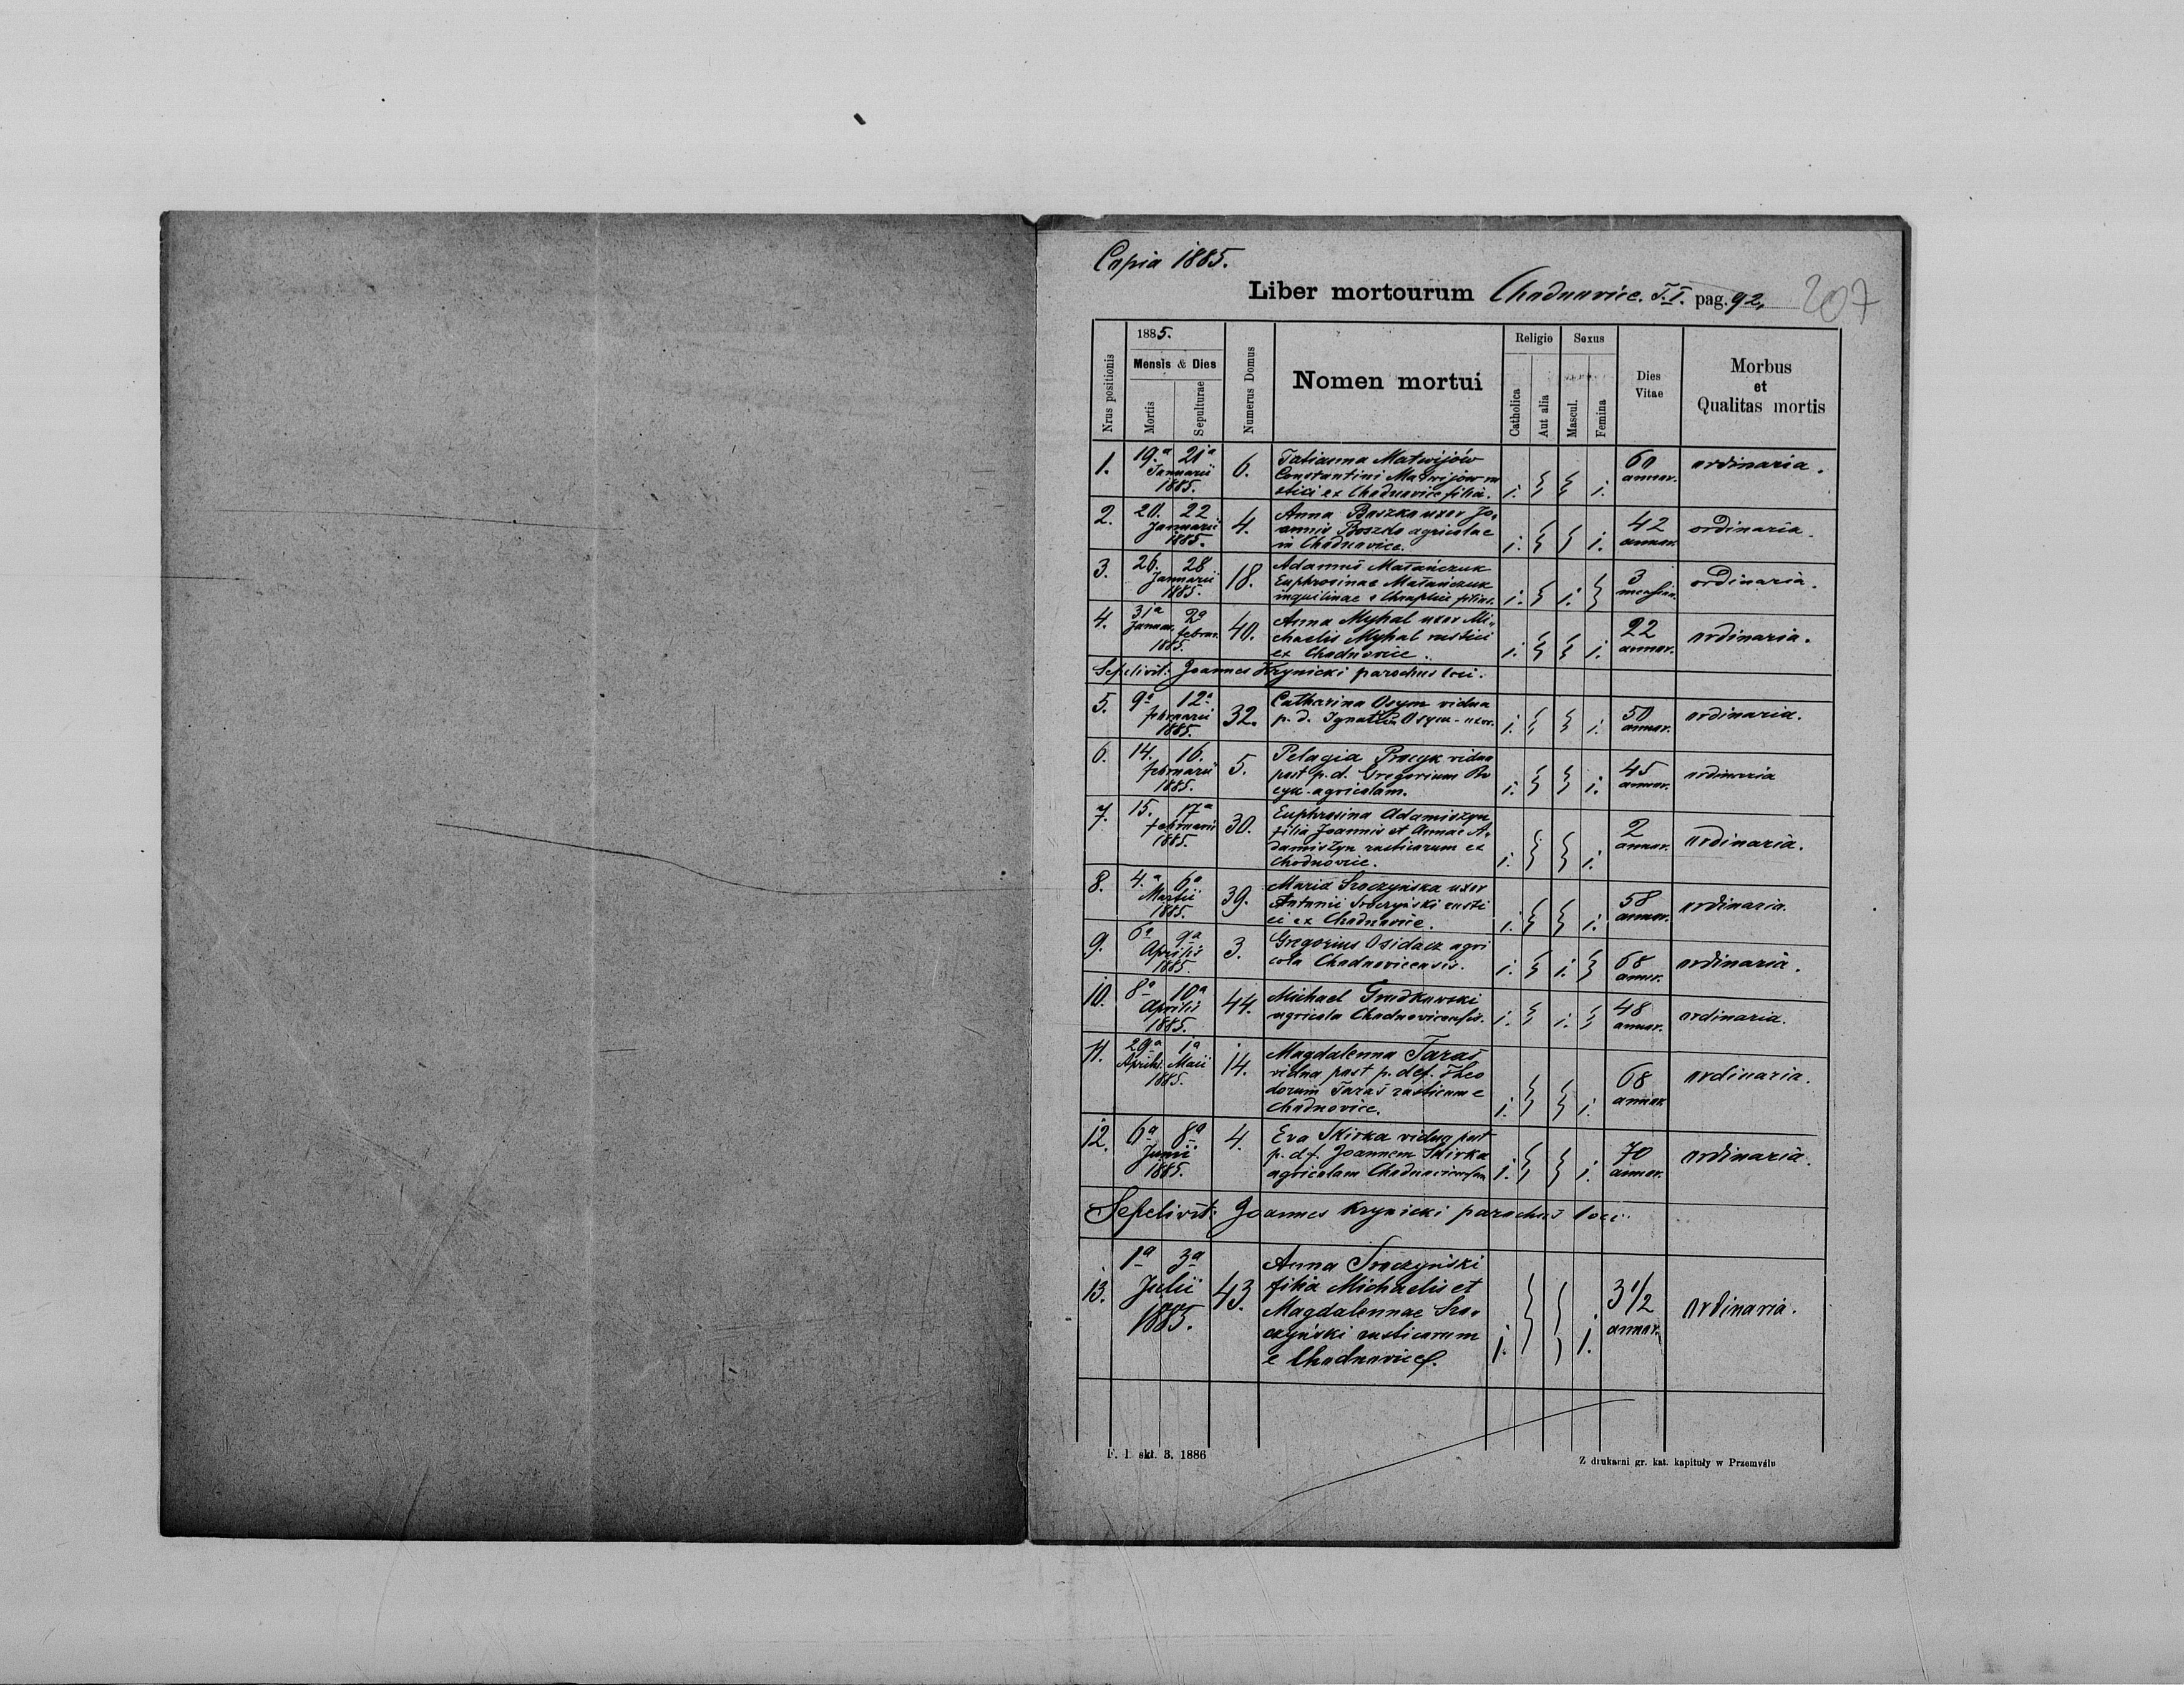 Copia 1885.
Liber mortourum Chodnovice. T. I. pag. 92,
207
Nrus positionis
1885.
Mensis & Dies
Mortis
Sepulturae
Numerus Domus
Nomen mortui
Religio
Catholica
Aut alia
Sexus
Mascul.
Femina
Dies
Vitae
Morbus
et
Qualitas mortis
1. 19.a 21a 6. Tatianna Matwijów 60 ordinaria.
Januarii Constantini Matwijów ru annor.
1885. stici ex Chodnovice filia. i. i.
2. 20. 22 4. Anna Boszko uxor Jo, 42 ordinaria.
Januarii annis Boszko agricolae annor.
1885. in Chodnovice. i. i.
3. 26. 28 18. Adamus Matańczuk 3 ordinaria.
Januarii Euphrosinae Matańczuk
1885. inquilinae e filius. i. i.
4. 31a 2a 40. Anna Myhal uxor Mi, 22 ordinaria.
Januar. Februar. chaelis Myhal rustici annor.
1885. ex Chodnovice. i. i.
Sepelivit: Joannes Krynicki parochus loci.
5. 9a 12a 32. Catharina Osym vidua 50 ordinaria.
februarii p. d. Ignatii Osym - uxor. annor.
1885. i. i.
6. 14. 16. 5. Pelagia Procyk vidua 45 ordinaria
februarii post p. d. Gregorium Pro annor.
1885. cyk - agricolam. i. i.
7. 15. 17a 30. Euphrosina Adamiszyn 2 ordinaria.
februarii filia Joannis et Annae A, annor.
1885. damiszyn rusticorum ex
Chodnovice. i. i.
8. 4.a 6a 39. Maria Sroczyńska uxor 58 ordinaria.
Martii Antonii Sroczyński rusti annor.
1885. ci ex Chodnovice. i. i.
9. 6a 9a 3. Gregorius Osidacz agri 68 ordinaria.
Aprilis cola Chodnovicensis. annor.
1885. i. i.
10. 8a 10a 44. Michael Grudkowski 48 ordinaria.
Aprilis agricola Chodnovicensis. annor.
1885. i. i.
11. 29a 1a 14. Magdalenna Taras 68 ordinaria.
Aprilis. Maii vidua post p. def. Theo annor
1885. dorum Taras rusticum e
Chodnovice. i. i.
12. 6a 8a 4. Eva Skirka vidua post 70 ordinaria.
Junii p. df. Joannem Skirka annor.
1885. agricolam Chodnovicensem i. i.
Sepelivit: Joannes Krynicki parochus loci.
13. 1a 3a 43. Anna Sroczyński 3 1/2 ordinaria.
Julii filia Michaelis et annor.
1885. Magdalennae Sro,
czyński rusticorum
e Chodnovice. i. i.
F. 1. skł. 3. 1886
Z drukarni gr. kat. kapituły w Przemyślu